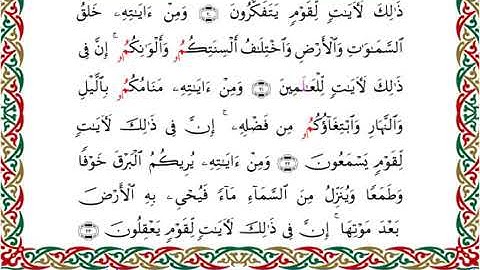 ذَٰلِكَ لَأٓيَٰتٖ لِّقَوۡمٖ يَتَفَكَّرُونَ ٢٠ وَمِنۡ ءَايَٰتِهِۦ خَلۡقُ
ٱلسَّمَٰوَٰتِ وَٱلۡأَرۡضِ وَٱخۡتِلَٰفُ أَلۡسِنَتِكُمُۥ وَأَلۡوَٰنِكُمُۥٓۚ إِنَّ فِي
ذَٰلِكَ لَأٓيَٰتٖ لِّلۡعَٰلَمِينَ ٢١ وَمِنۡ ءَايَٰتِهِۦ مَنَامُكُمُۥ بِٱلَّيۡلِ
وَٱلنَّهَارِ وَٱبۡتِغَآؤُكُمُۥ مِن فَضۡلِهِۦٓۚ إِنَّ فِي ذَٰلِكَ لَأٓيَٰتٖ
لِّقَوۡمٖ يَسۡمَعُونَ ٢٢ وَمِنۡ ءَايَٰتِهِۦ يُرِيكُمُ ٱلۡبَرۡقَ خَوۡفٗا
وَطَمَعٗا وَيُنَزِّلُ مِنَ ٱلسَّمَآءِ مَآءٗ فَيُحۡيِۦ بِهِ ٱلۡأَرۡضَ
بَعۡدَ مَوۡتِهَآۚ إِنَّ فِي ذَٰلِكَ لَأٓيَٰتٖ لِّقَوۡمٖ يَعۡقِلُونَ ٢٣